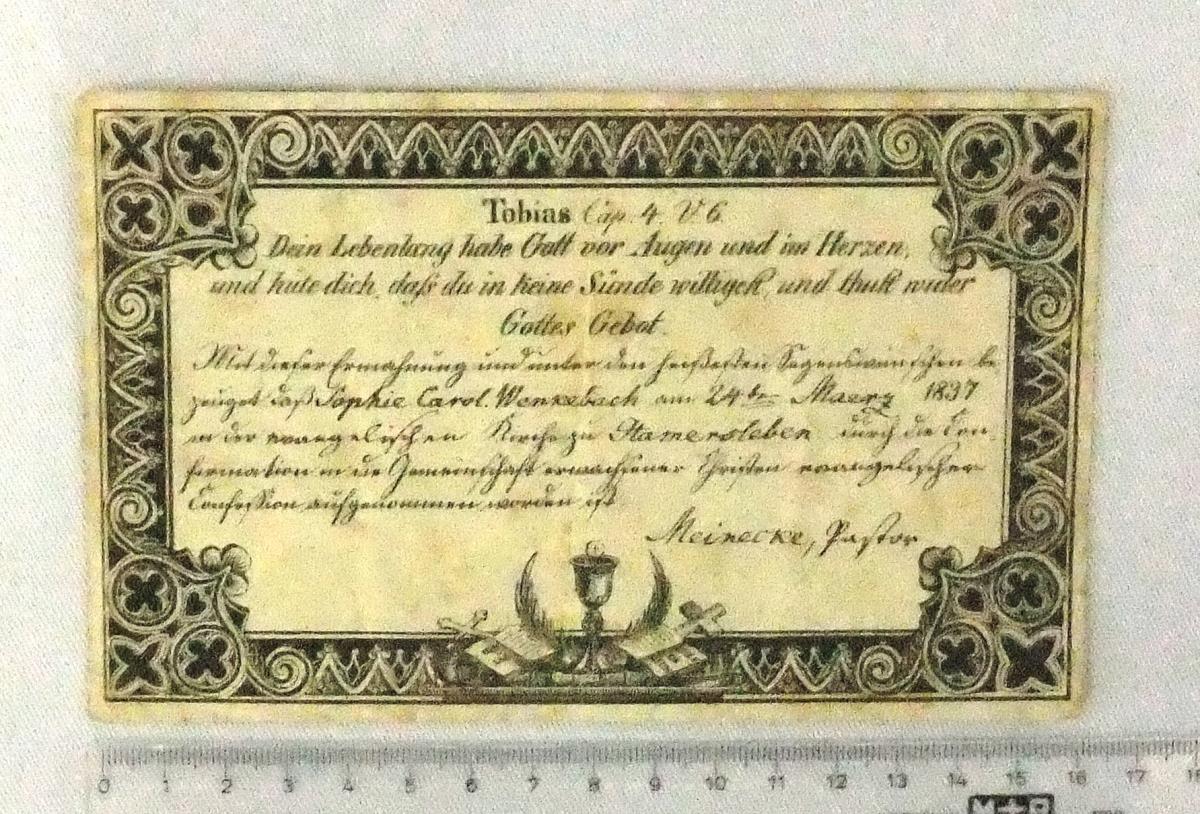 Tobias Cap. 4. V. 6.
Dein Lebenlang habe Gott vor Augen und im Herzen,
und hüte dich, daß du in keine Sünde willigest, und thust wider
Gottes Gebot.
Mit dieser Ermahnung und unter den heißesten Segenswünschen be
zeuget daß Sophie Carol. Wenkebach am 24ten Maerz 1837
in der evangelischen Kirche zu Hamersleben durch die Con-
firmation in die Gemeinschaft erwachsener Christen evangelischer
Confession aufgenommen worden ist.
Meinecke, Pastor
0 1 2 3 4 5 6 7 8 9 10 11 12 13 14 15 16 17 18